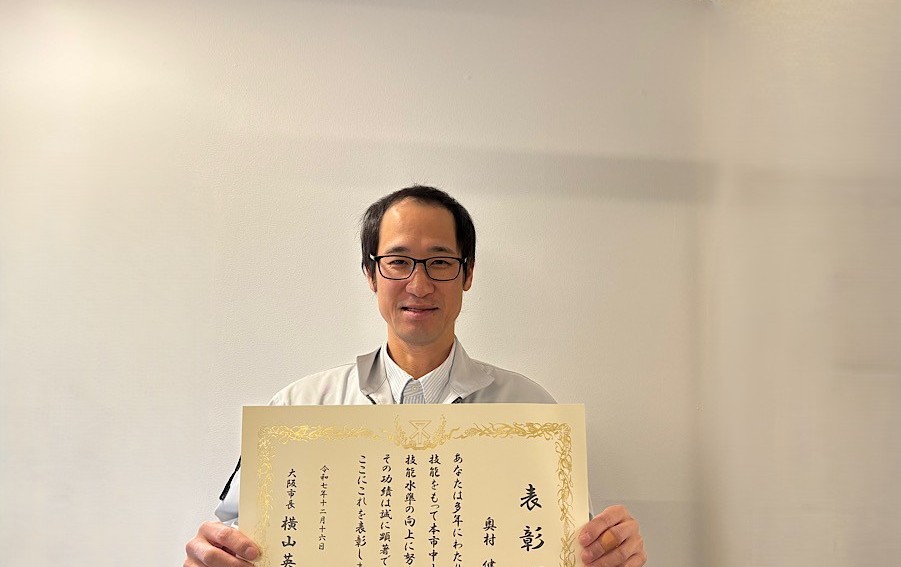 表彰
奥村 健
あなたは多年にわたり
技能をもって本市中
技能水準の向上に努
その功績は誠に顕著で
ここにこれを表彰しま
令和七年十二月十六日
大阪市長 横山英